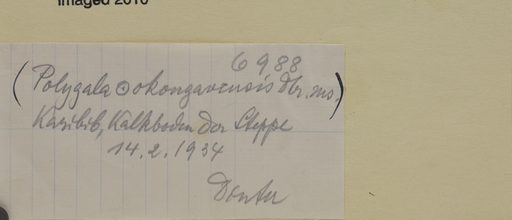 Imaged 2010
6988
(Polygala okongavensis Dtr. ms.)
Karibib, Kalkboden der Steppe
14.2.1934
Dinter